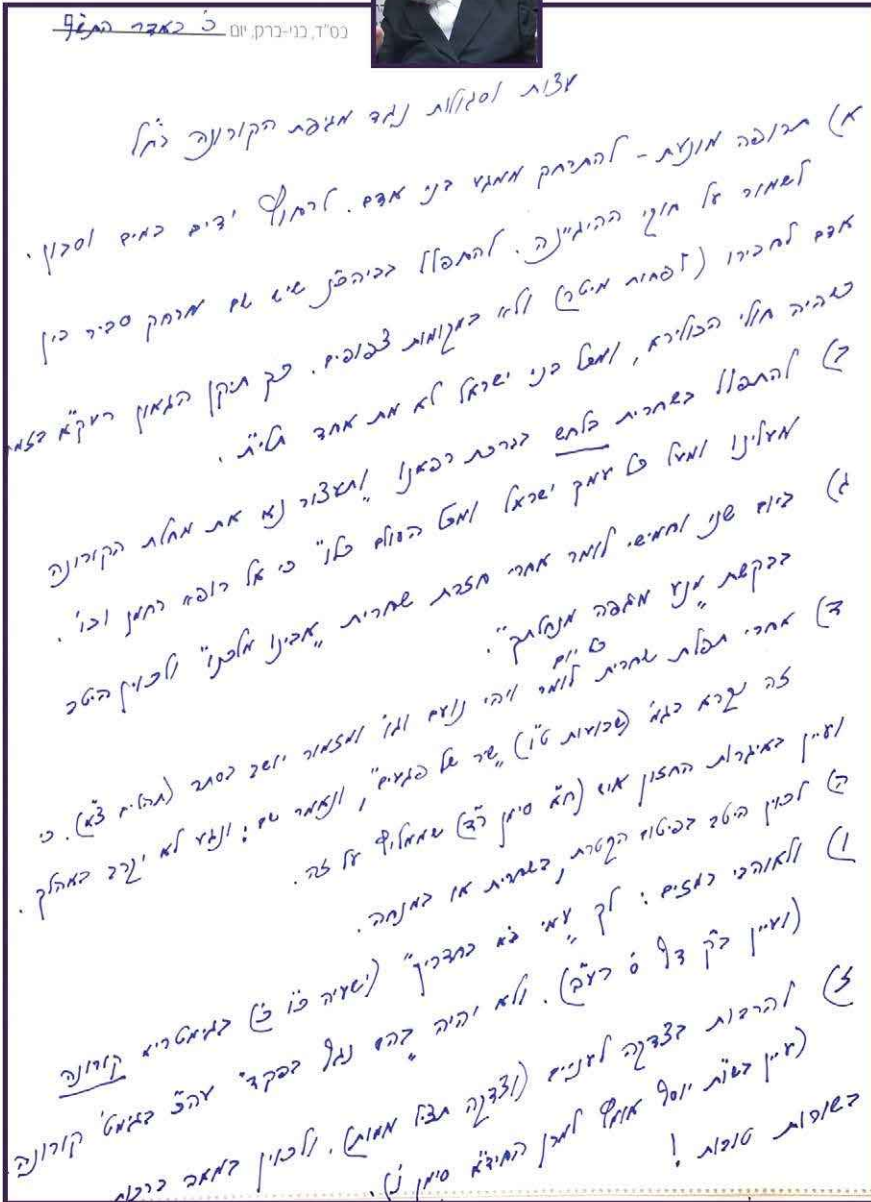 בס"ד, בני-ברק, יום כ' באדר התש"ף
עצות וסגולות נגד מגיפת הקורונה רח"ל
א) תרופה מונעת - להתרחק ממגע בני אדם. לרחוץ ידים במים וסבון.
לשמור על חוקי ההיגיינה. להתפלל בביהכ"נ שיש שם מרחק סביר בין
אדם לחבירו (לפחות מיטר) ולא במקומות צפופים. כך תיקן הגאון רעק"א בזמנו
כשהיה חולי הכולירא, ומשל בני ישראל לא מת אחד תלי"ת.
ב) להתפלל בשחרית בלחש בברכת רפאנו "ותעצור נא את מחלת הקורונה
מעלינו ומעל כל עמך ישראל ומכל העולם כלו" כי אל רופא רחמן וכו'.
ג) ביום שני וחמישי לומר אחרי חזרת שחרית "אבינו מלכנו" ולכוין היטב
בבקשת "מנע מגפה מנחלתך".
ד) אחרי תפלת שחרית כל יום לומר ויהי נועם וגו' ומזמור יושב בסתר (תהלים צ"א). כי
זה נקרא בגמ' (שבועות ט"ו) "שיר של פגעים", ונאמר שם: ונגע לא יקרב באהלך.
ועיין באיגרות החזון איש (ח"א סימן ר"ד) שממליץ על זה.
ה) לכוין היטב בפיטום הקטרת, בשחרית או במנחה.
ו) ולאוהבי רמזים: לך "עמי בא בחדריך" (ישעיה כ"ו כ') בגימטריא קורונה
(ועיין ב"ק דף ס' רע"ב). ולא יהיה "בהם נגף בפקד" עה"כ בגימט' קורונה
ז) להרבות בצדקה לעניים (וצדקה תציל ממות). ולכוין במאה ברכות
(עיין בשו"ת יוסף אומץ למרן החיד"א סימן נ').
בשורות טובות!